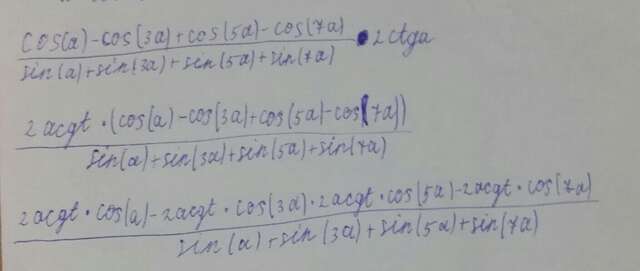 cos(a)-cos(3a)+cos(5a)-cos(7a)
sin(a)+sin(3a)+sin(5a)+sin(7a)
• 2ctga
2acgt•(cos(a)-cos(3a)+cos(5a)-cos(7a))
sin(a)+sin(3a)+sin(5a)+sin(7a)
2acgt•cos(a)-2acgt•cos(3a)•2acgt•cos(5a)-2acgt•cos(7a)
sin(a)+sin(3a)+sin(5a)+sin(7a)